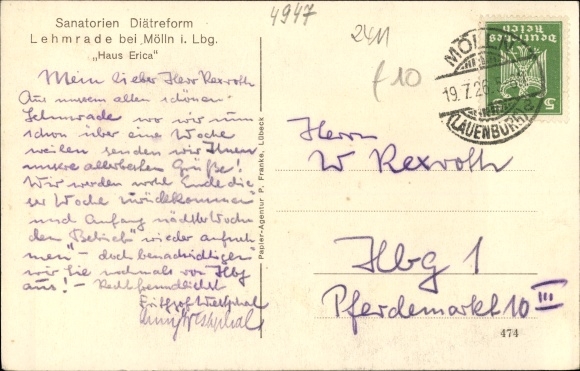 Sanatorien Diätreform
Lehmrade bei Mölln i. Lbg.
„Haus Erica"
Mein lieber Herr Rexroth
Aus unserm alten schönen
Lehmrade wo wir nun
schon über eine Woche
weilen senden wir Ihnen
unsre allerbesten Grüße!
Wir werden wohl Ende die-
ser Woche zurückkommen
und Anfang nächster Woche
den „Betrieb" wieder aufneh-
men" – doch benachrichtigen
wir Sie nochmals von Hbg
aus! – Recht freundlichst
Frithjof Westphal
Westphal
Papier-Agentur P. Franke, Lübeck
4947
2411
f 10
MÖLLN
19.7.26
(LAUENBURG)
Deutsches Reich
5
Herrn
W Rexroth
Hbg 1
Pferdemarkt 10 III
474